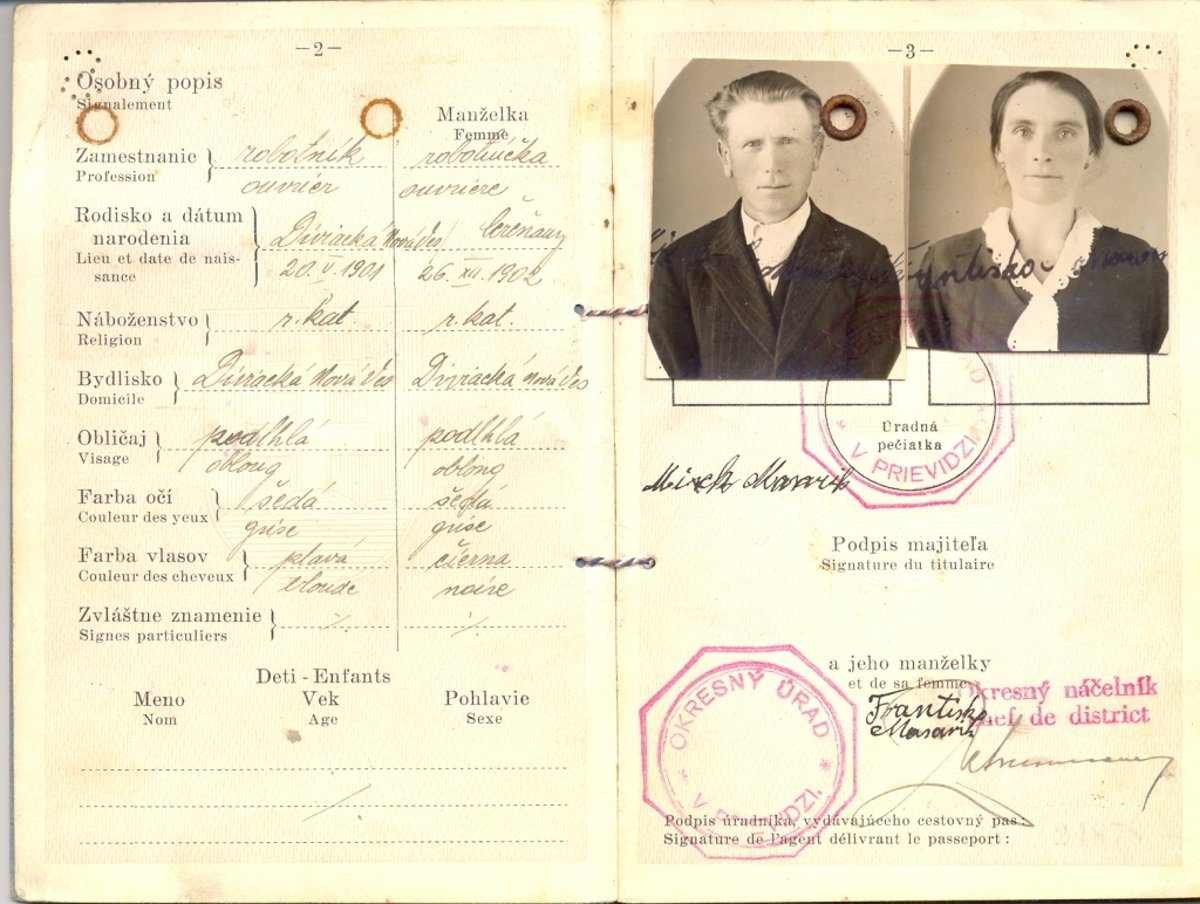 —2—
Osobný popis
Signalement
Manželka
Femme
Zamestnanie
Profession
robotník
robotníčka
ouvrier
ouvriere
Rodisko a dátum
narodenia
Lieu et date de nais-
sance
Diviacká Nová Ves
20. V. 1901
26. XII. 1902
Náboženstvo
Religion
r. kat.
r. kat.
Bydlisko
Domicile
Diviacká Nová Ves
Diviacká Nová Ves
Obličaj
Visage
podlhlá
podlhlá
oblong
oblong
Farba očí
Couleur des yeux
šedá
šedá
grise
grise
Farba vlasov
Couleur des cheveux
plavá
čierna
blonde
noire
Zvláštne znamenie
Signes particuliers
Deti - Enfants
Meno
Nom
Vek
Age
Pohlavie
Sexe
—3—
Úradná
pečiatka
V PRIEVIDZI.
Masarik
Podpis majiteľa
Signature du titulaire
a jeho manželky
et de sa femme
Okresný náčelník
Chef de district
Františka
Masarik
OKRESNÝ ÚRAD
V PRIEVIDZI.
Podpis úradníka, vydávajúceho cestovný pas:
Signature de l'agent délivrant le passeport: